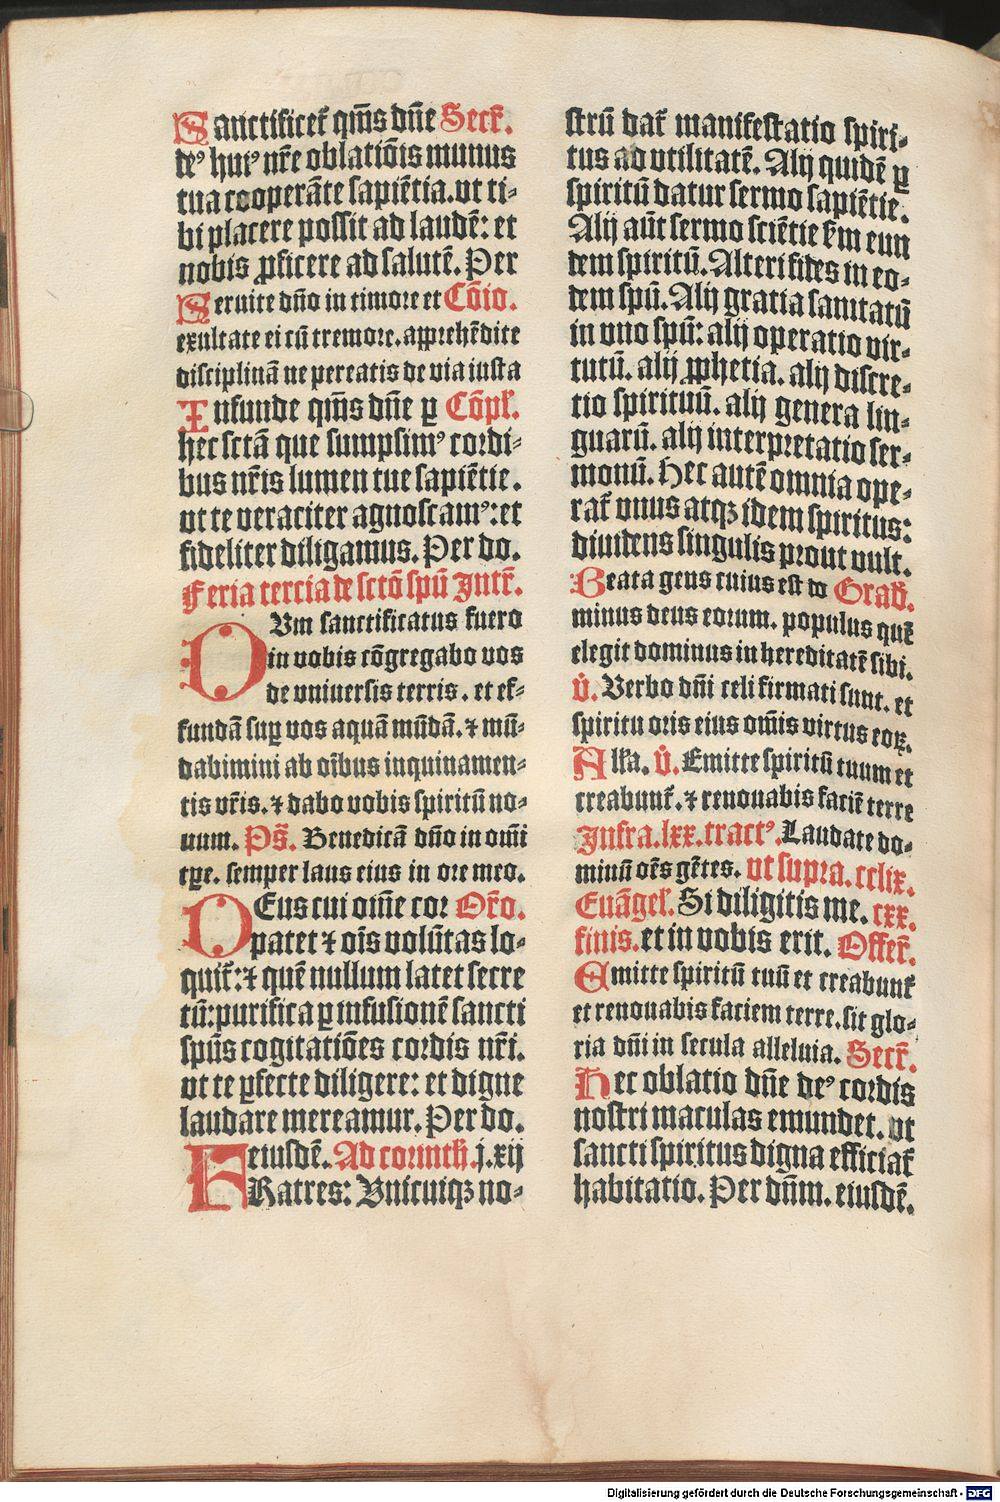 Sanctificet᷑ qm̄s dn̄e Secr̄.
deꝰ huiꝰ nr̄e oblatiōis munus
tua cooperāte sapiētia. vt ti⸗
bi placere possit ad laudē: et
nobis ꝓficere ad salutē. Per
Seruite dn̄o in timore et Cōio.
exultate ei cū tremore. apprehēdite
disciplinā ne pereatis de via iusta
Infunde qm̄s dn̄e ꝑ Cōpl̄.
hec sctā que sumpsimꝰ cordi⸗
bus nr̄is lumen tue sapiētie.
vt te veraciter agnoscamꝰ: et
fideliter diligamus. Per do.
Feria tercia de sctō spū Intr̄.
CVm sanctificatus fuero
in vobis cōgregabo vos
de vniuersis terris. et ef⸗
fundā suꝑ vos aquā mūdā. ⁊ mū⸗
dabimini ab oībus inquinamen⸗
tis vr̄is. ⁊ dabo vobis spiritū no⸗
uum. Ps̄. Benedicā dn̄o in om̄i
tꝑe. semper laus eius in ore meo.
DEus cui oīne cor Or̄o.
patet ⁊ oīs volūtas lo⸗
quit᷑: ⁊ quē nullum latet secre
tū: purifica ꝑ infusionē sancti
spūs cogitatiōes cordis nr̄i.
vt te ꝑfecte diligere: et digne
laudare mereamur. Per do.
eiusdē. Ad corinth. j. xij
FRatres: Vnicuiqꝫ no⸗
strū dat᷑ manifestatio spiri⸗
tus ad vtilitatē. Alij quidē ꝑ
spiritū datur sermo sapiētie.
Alij aūt sermo sciētie s̄m eun
dem spiritū. Alteri fides in eo⸗
dem spū. Alij gratia sanitatū
in vno spū: alij operatio vir⸗
tutū. alij ꝓphetia. alij discre⸗
tio spirituū. alij genera lin⸗
guarū. alij interpretatio ser⸗
monū. Hec autē omnia ope⸗
rat᷑ vnus atqꝫ idem spiritus:
diuidens singulis prout vult.
Beata gens cuius est do Grad̄.
minus deus eorum. populus quē
elegit dominus in hereditatē sibi.
v̄. Verbo dn̄i celi firmati sunt. et
spiritu oris eius om̄is virtus eoꝝ.
All̄a. v̄. Emitte spiritū tuum et
creabunt᷑. ⁊ renouabis faciē terre
Infra. lxx. tractꝰ. Laudate do⸗
minū oēs gētes. vt supra. cclix.
Euāgel̄. Si diligitis me. cxx.
finis. et in vobis erit. Offer̄.
Emitte spiritū tuū et creabunt᷑
et renouabis faciem terre. sit glo⸗
ria dn̄i in secula alleluia. Secr̄.
Hec oblatio dn̄e deꝰ cordis
nostri maculas emundet. vt
sancti spiritus digna efficiat᷑
habitatio. Per dn̄m. eiusdē.
Digitalisierung gefördert durch die Deutsche Forschungsgemeinschaft - DFG